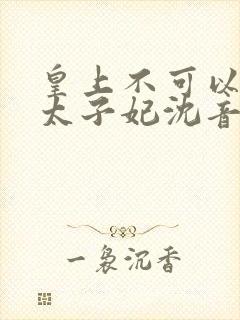 皇上不可以
太子妃沈音
一袅沉香